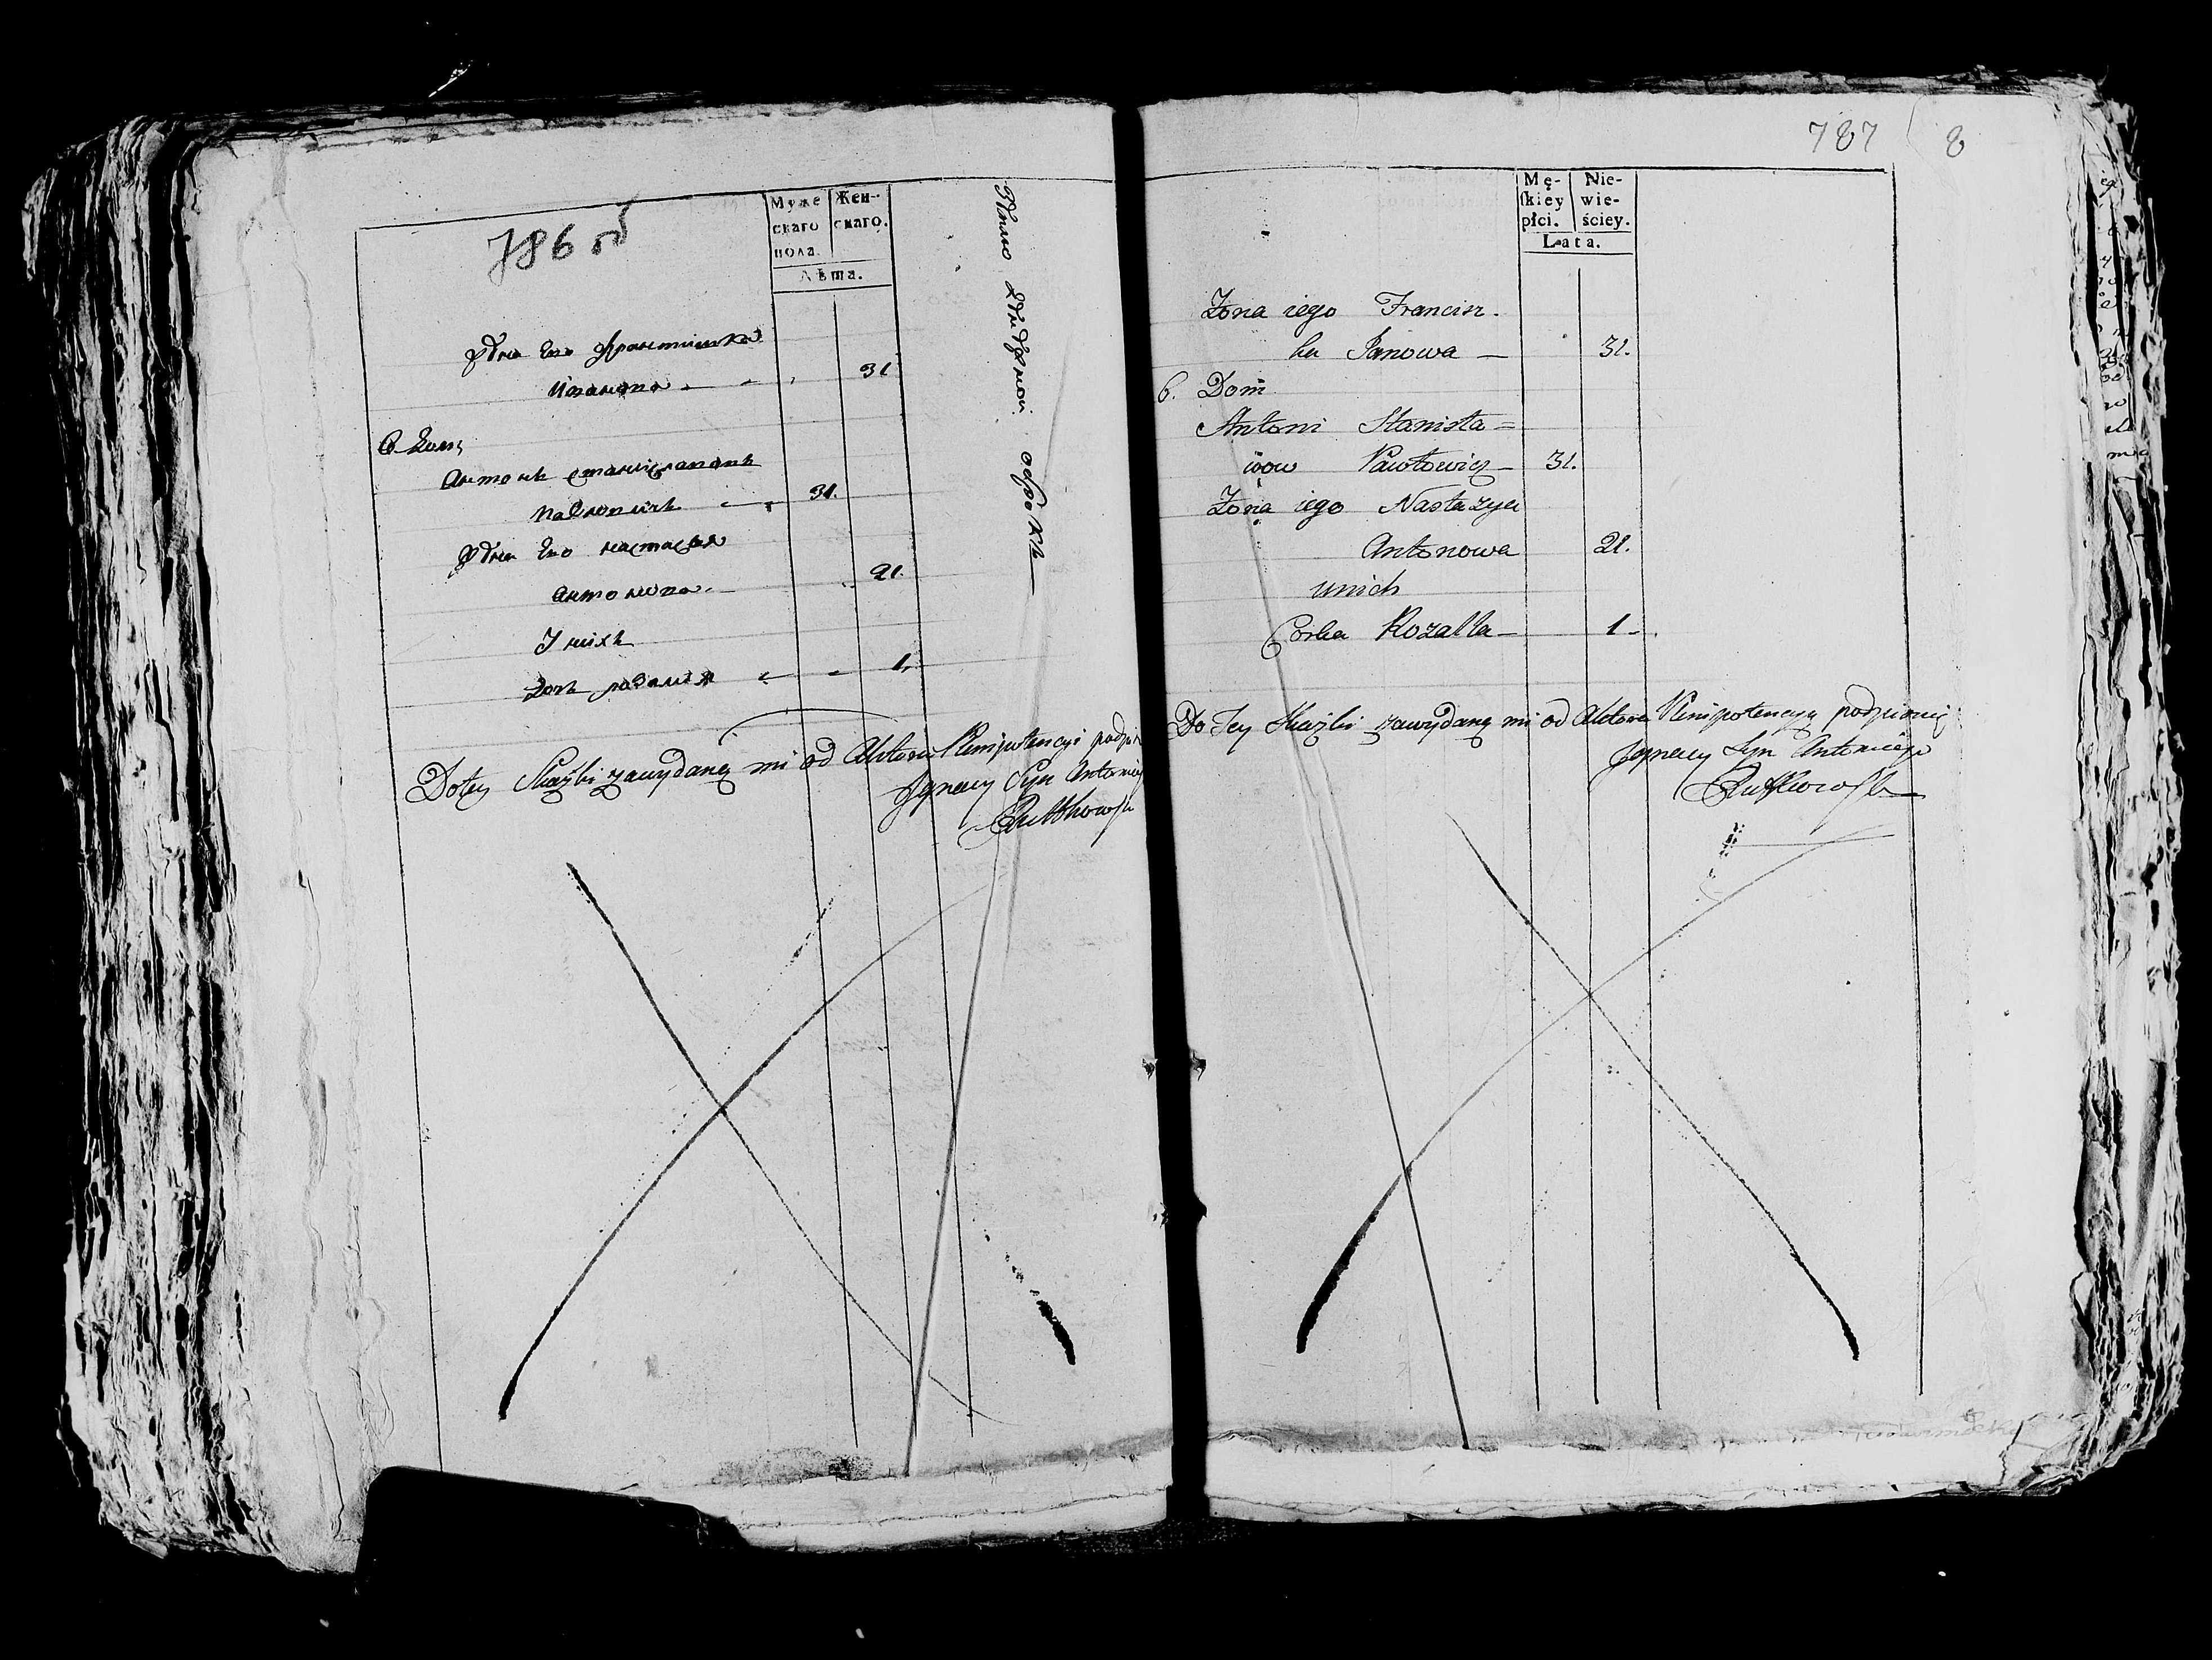 786 об
Муже
скаго
пола.
Жен-
скаго.
Лѣта.
Жена Его Францишка
Иванова 31
6 домъ
Антонъ Станиславовъ
Павловичь 31.
Жена Его Настасья
Антонова 21.
У нихъ
дочь розалія 1.
Do tey Skazki zawydaną mi od Aktora Plenipotencyi
Jgnacy Syn
Rutkowski
787 8
Mę-
ſkiey
płci.
Nie-
wie-
ściey.
Lata.
Żona iego Francisz-
ka Janowa — 31.
6. Dom
Antoni Stanisła =
wow Pawłowicz — 31.
Żona iego Nastazya
Antonowa 21.
unich
Corka Rozalia — 1 -
Do Tey Skazki zawydaną mi od Aktora Plenipotencyą
Jgnacy Syn Antoniego
Rutkowski